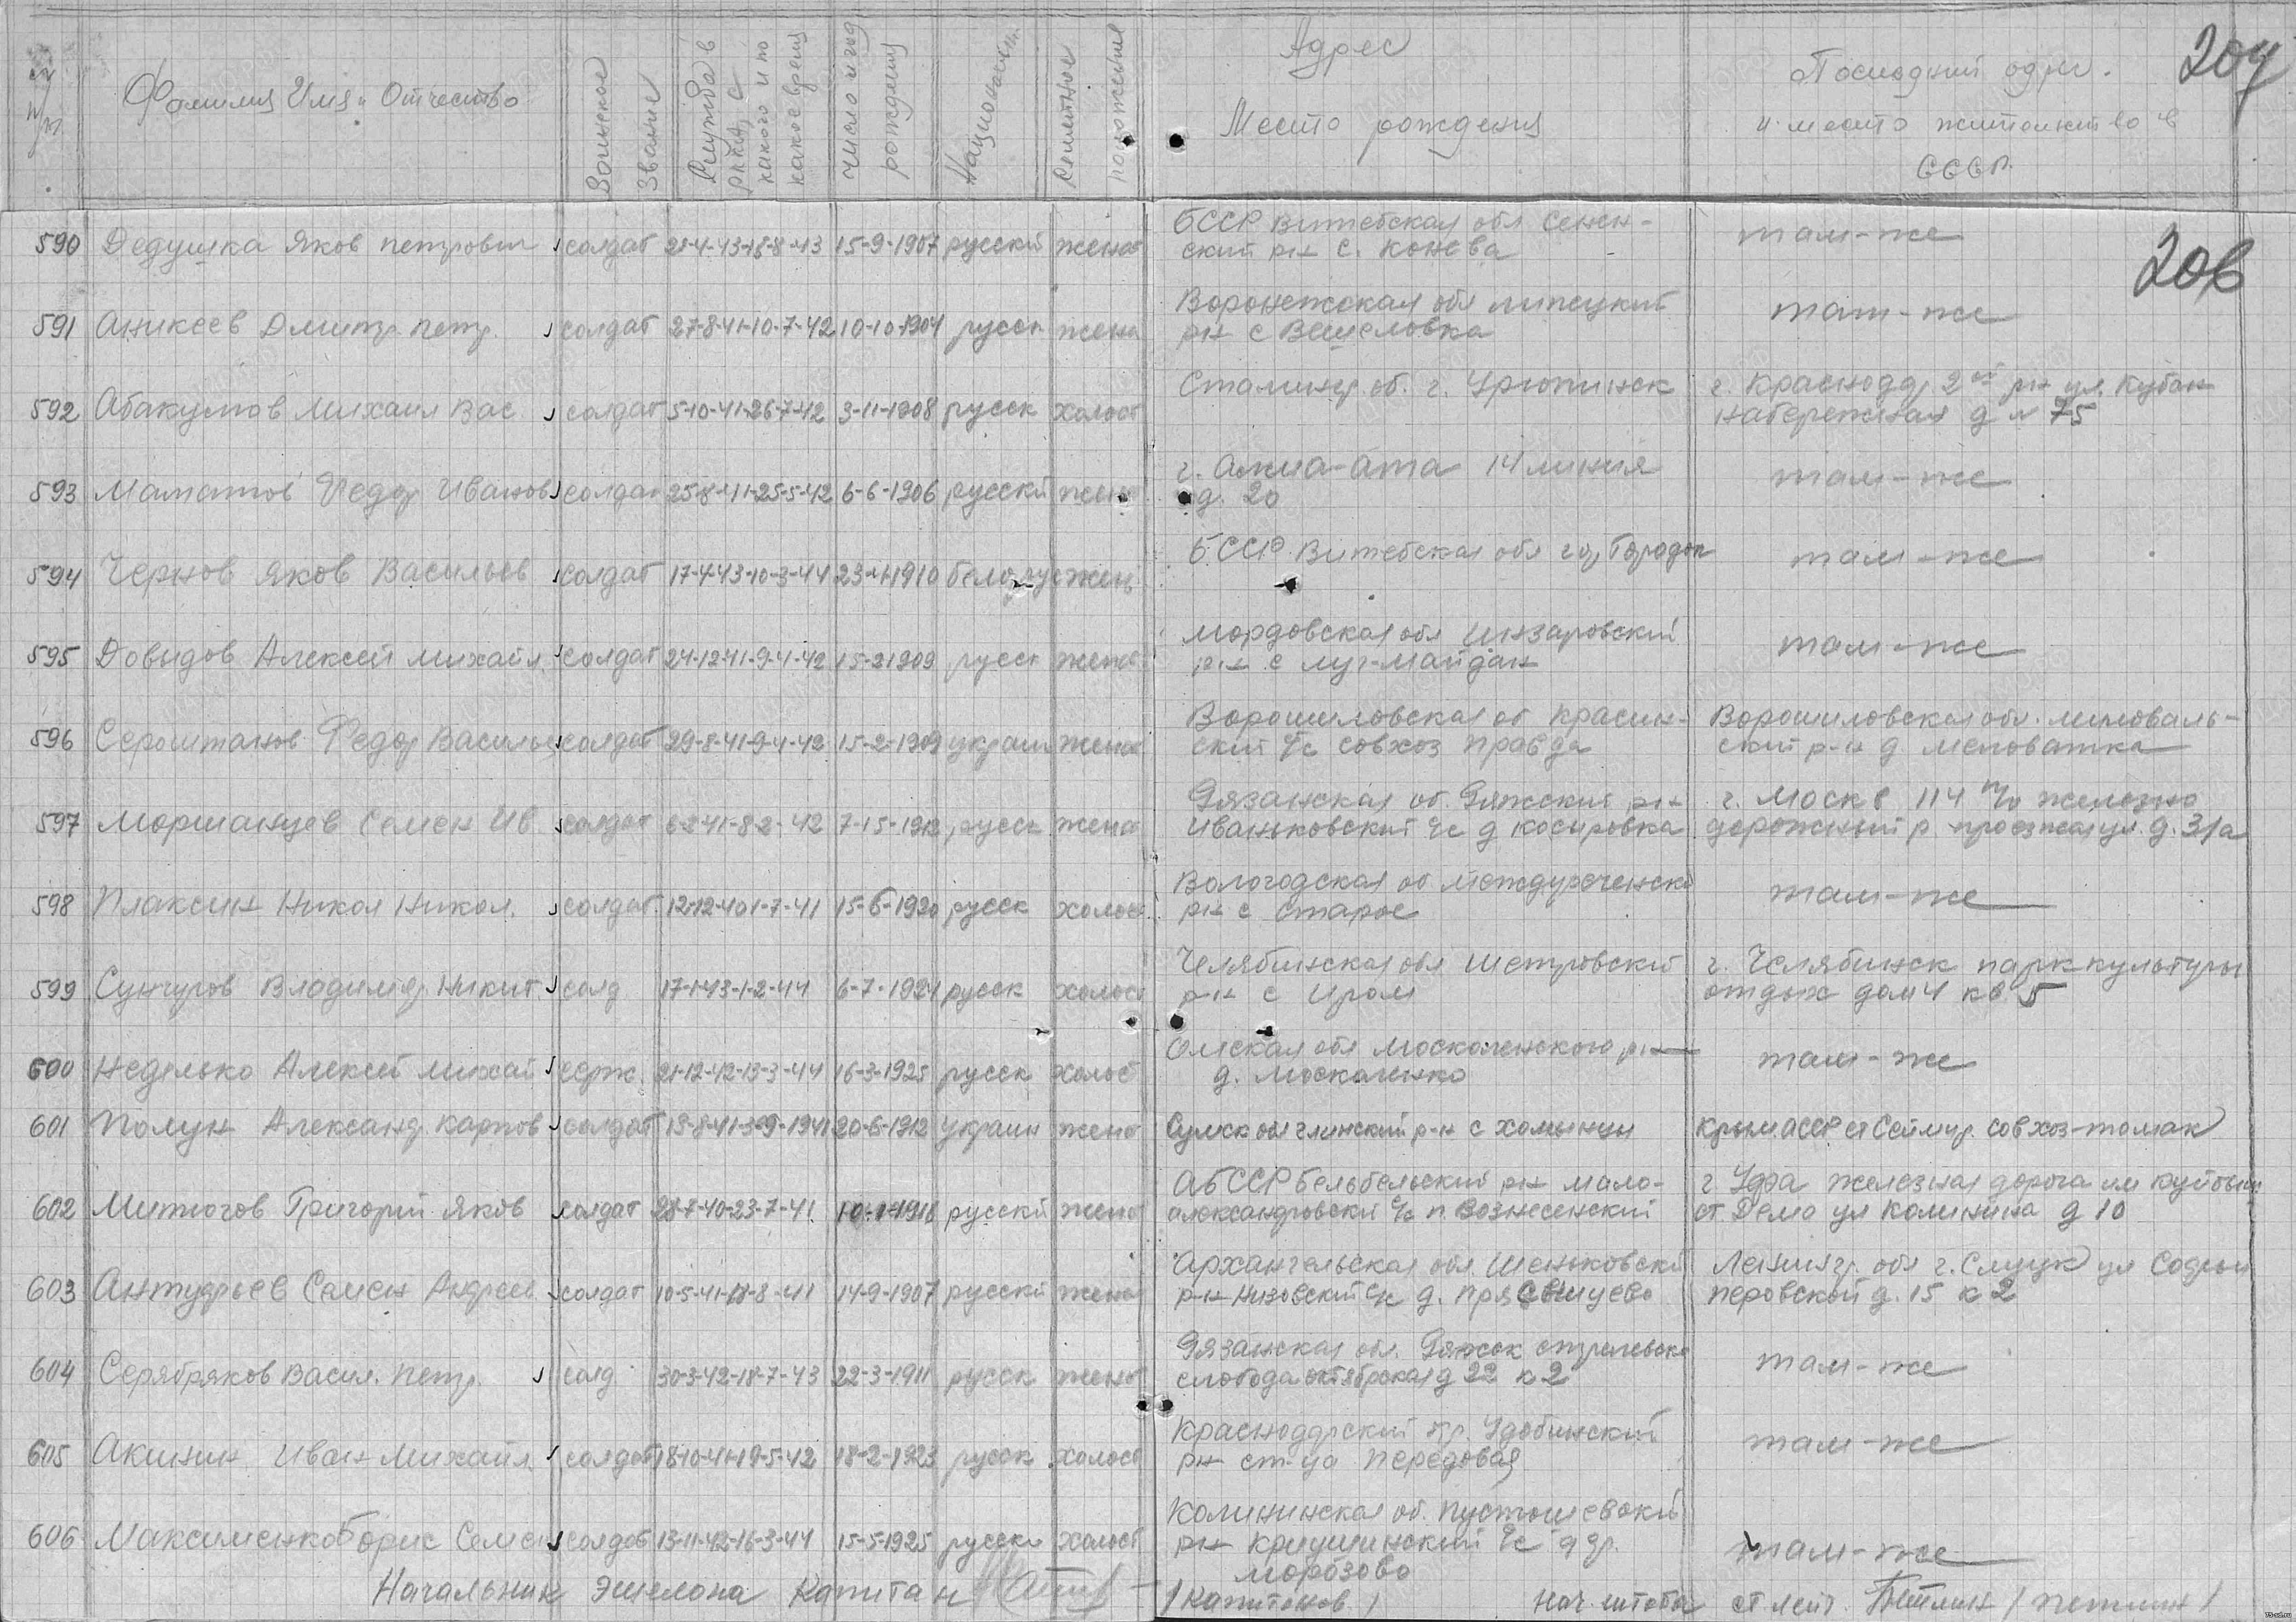 № п/п. Фамилия Имя и Отчество Воинское звание Служба в РККА с какого и по какое время число и год рождения Национальность Семейное положение
Адрес
Место рождения
Последний адрес.
и место жительство в
СССР.
204
206
590 Дедушка Яков Петрович солдат 21-4-43-18-8-43 15-9-1907 русский женат БССР Витебская обл Сенен-
ский рн с. Конева там-же
591 Аникеев Дмитр Петр. солдат 27-8-41-10-7-42 10-10-1904 русск женат Воронежская обл Липецкий
рн с Вешеловка там-же
592 Абакумов Михаил Вас. солдат 5-10-41-26-7-42 3-11-1908 русск холост Сталингр. об. г. Урюпинск г. Краснодар 2ой рн ул. Кубан
набережная д № 75
593 Маматов Федор Иванов солдат 25-8-41-25-5-42 6-6-1906 русский женат г. Алма-Ата 14 линия
д. 20 там-же
594 Чернов Яков Васильев солдат 17-4-43-10-3-44 23-4-1910 белорус жен БССР Витебская обл гор Городок там-же
595 Довыдов Алексей Михайл солдат 24-12-41-9-4-42 15-2-1909 русск женат Мордовская обл Инзаровский
рн с Луг-Майдан там-же
596 Сероштанов Федор Василье солдат 29-8-41-9-4-42 15-2-1909 украин женат Ворошиловская об Красин-
ский с/с совхоз Правда Ворошиловская обл. Миловаль-
ский р-н д Меловатка
597 Моршанцев Семен Ив солдат 6-8-41-8-2-42 7-15-1912 русск женат Рязанская об. Ряжский рн
Иваньковский с/с д Косировка г. Москв 114 п/о железно
дорожный р. проезжая ул. д. 31а
598 Плаксин Никол Никол. солдат 12-12-40 1-7-41 15-6-1920 русск холост Вологодская об Междуреченский
рн с Старое там-же
599 Сунгуров Владимир Никит. солд 17-1-43-1-2-44 6-7-1924 русск холост Челябинская обл Шетровский
рн с Иром г. Челябинск парк культуры
отдых дом 4 кв 5
600 Неделько Алексей Михай серж. 21-12-42-13-3-44 16-3-1925 русск холост Омская обл Москаленского рн
д. Москаленко там-же
601 Полун Александ Карпов солдат 13-8-41-3-9-1941 20-6-1912 украин женат Сумск обл Глинский р-н с Хоминцы Крым. АССР ст Сейтлер. совхоз-томак
602 Митюгов Григорий Яков солдат 28-7-40-23-7-41 10-1-1918 русский женат АБССР Бельбельский рн Мало-
александровский с/с п. Вознесенский г Уфа железная дорога им Куйбыш
ст. Дема ул Калинина д 10
603 Антуфьев Семен Андреев солдат 10-5-41-18-8-41 14-9-1907 русский женат Архангельская обл. Шеньковский
р-н Низовский с/с д. Прясницуево Ленингр. обл г. Слуцк ул Софьи
Перовской д. 15 к 2
604 Серябряков Васил. Петр. солд 30-3-42-18-7-43 22-3-1911 русск женат Рязанская обл. Ряжск стрелевск
слобода октябрская д 22 к 2 там-же
605 Акинин Иван Михайл солдат 18-10-41-19-5-42 18-2-1923 русск холост Краснодарский кр. Удобинский
рн ст-ца Передовая там-же
606 Максименко Борис Семен солдат 13-11-42-16-3-44 15-5-1925 русски холост Калининская об. Пустошевский
рн Криушинский с/с д др.
Морозово там-же
Начальник Эшелона Капитан /Капитонов/ Нач. штаба ст лейт Петлин /Петлин/